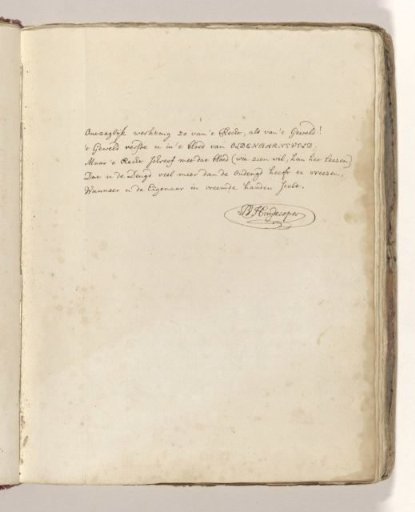 Onzaglijk werktuig zo van 't Recht, als van 't Geweld!
't Geweld verfde u in 't bloed van OLDENBARNEVELD,
Maar 't Recht schreef met dat bloed (wie zien wil, kan het leezen)
Dat u de Deugd veel meer dan de Ondeugd heeft te vreezen,
Wanneer u de Eigenaar in vreemde handen stelt.
B Huydecoper